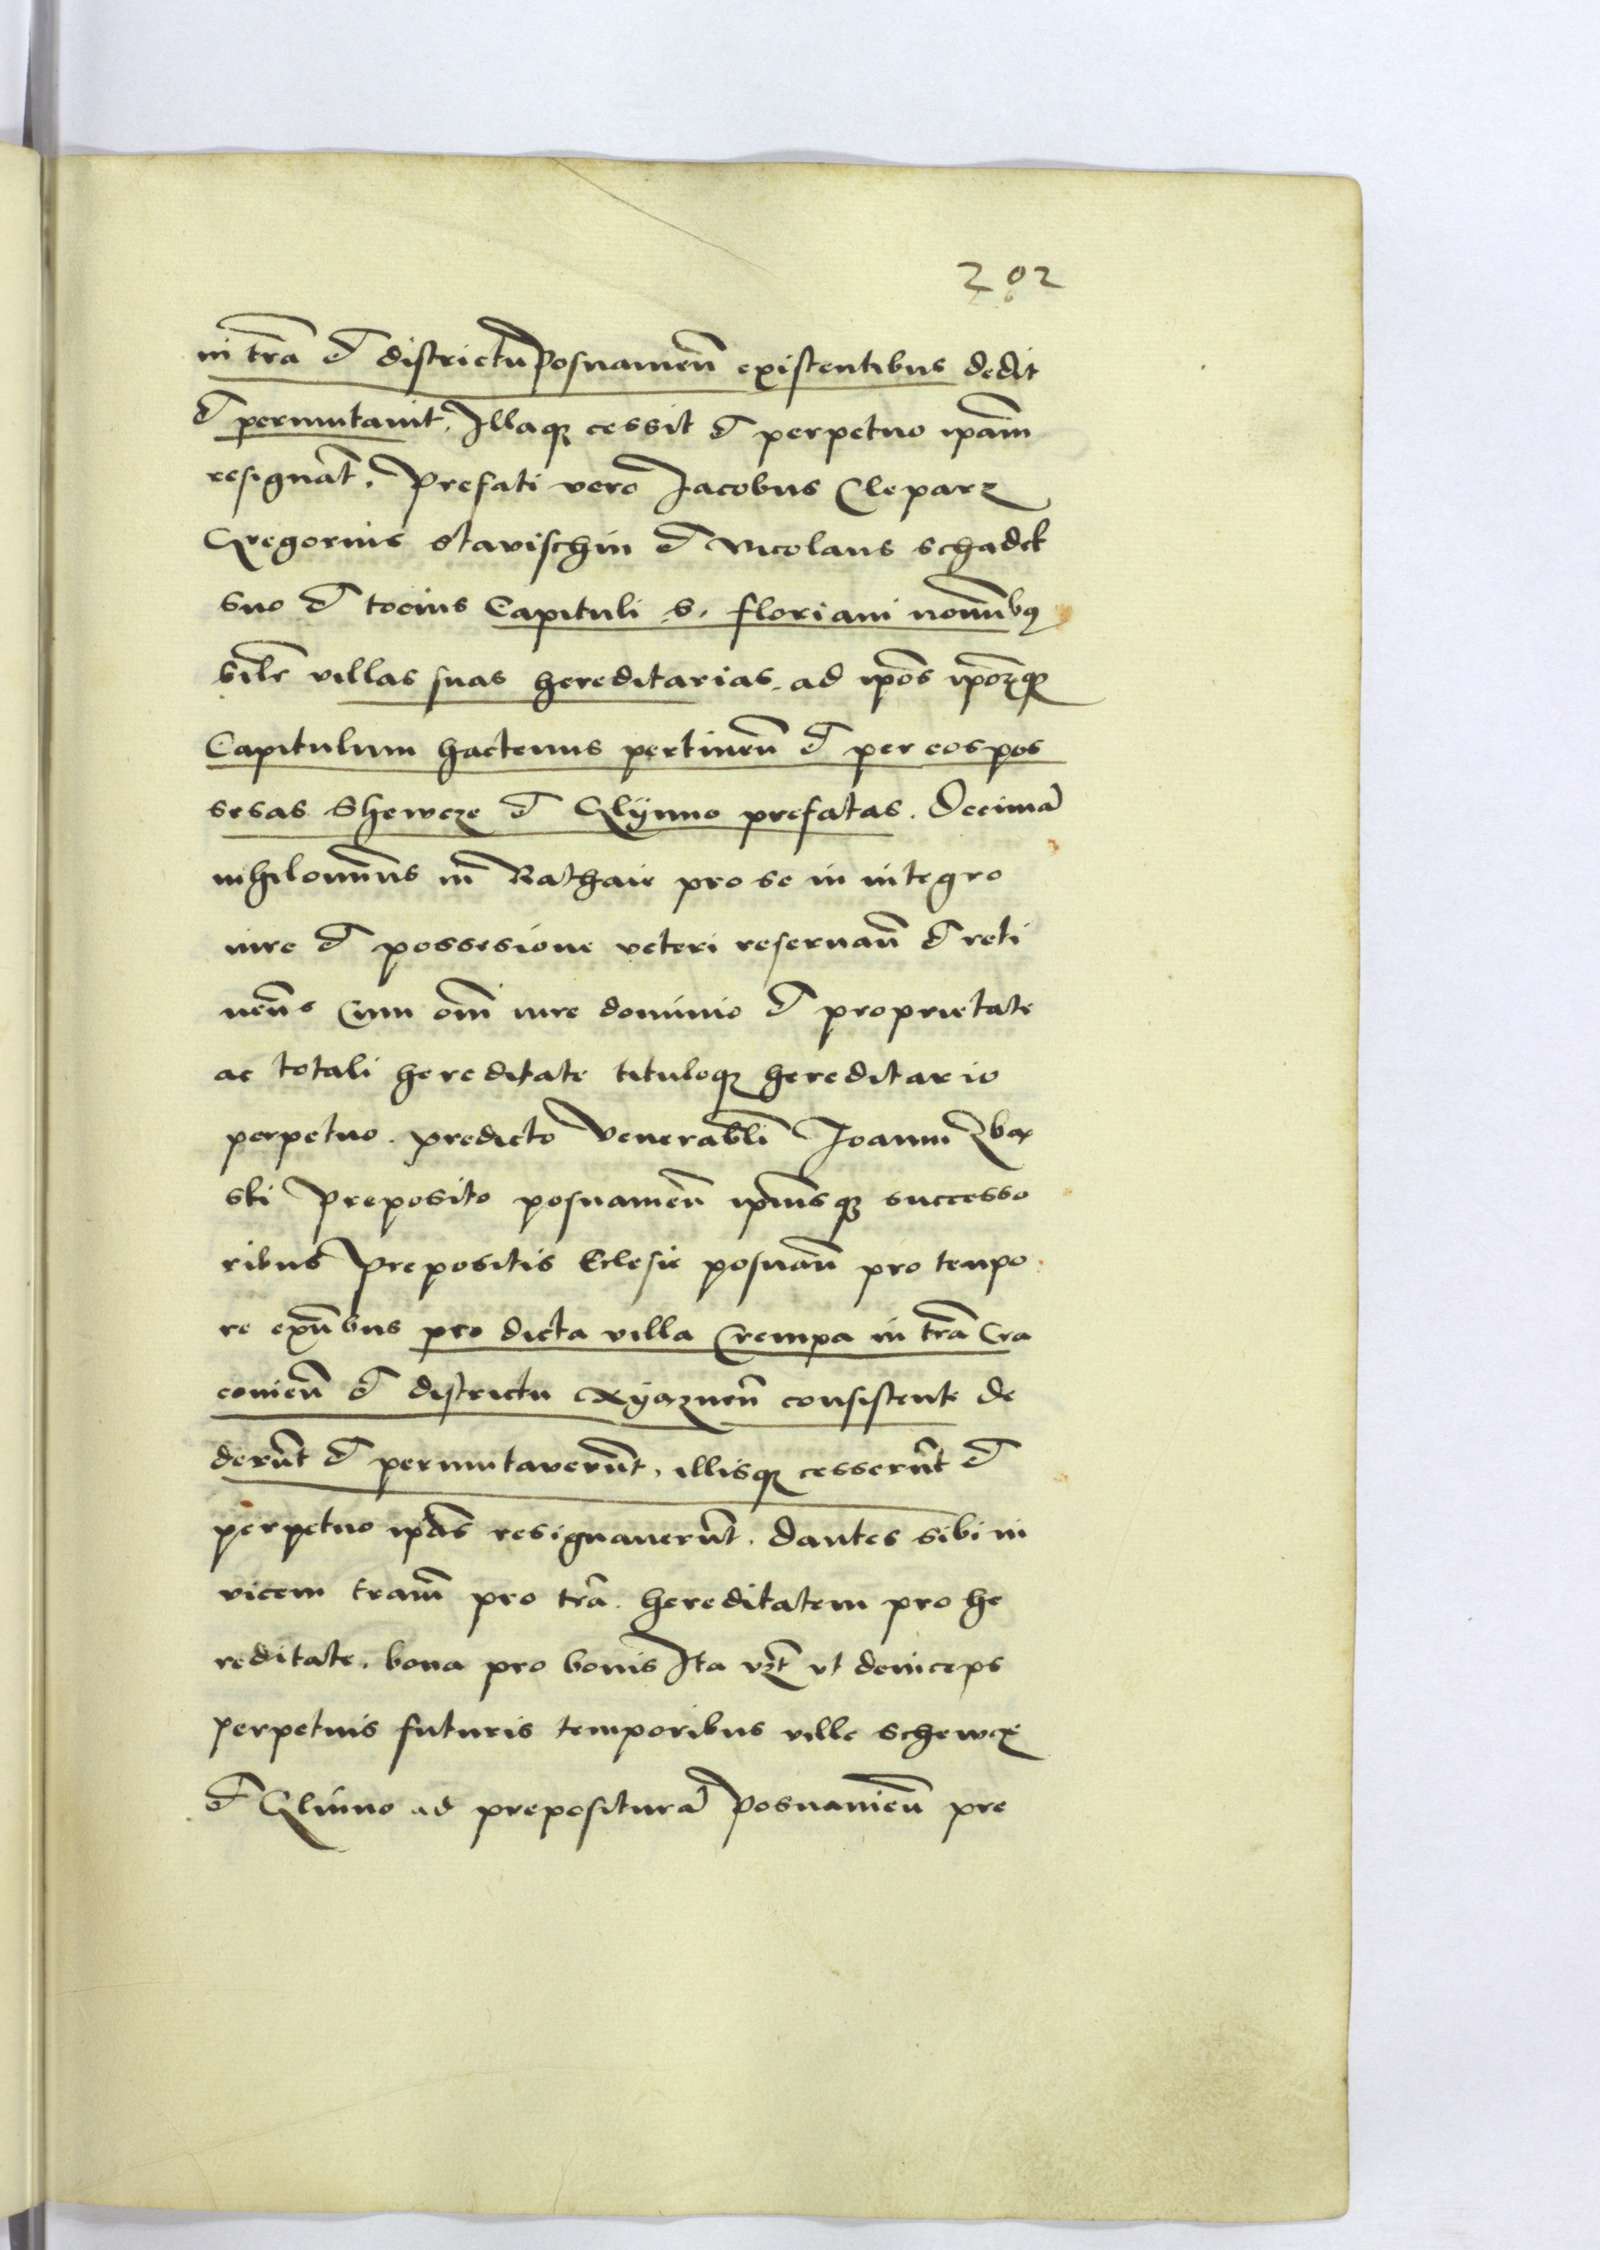 202
in tra͞ et districtu Posnanien̄ existentibus dedit
et permutavit. Illaqꝫ cessit et perpetuo ipam̄
resignat̄. Prefati vero Jacobus Cleparz
Gregorius stavischin et Nicolaus schadek
suo et tocius Capituli S. floriani nomī̄bꝯ
siml̄r villas suas hereditarias. ad ip̄os ip̄oꝝqꝫ
Capitulum hactenus pertinen̄ et per eos pos
sesas Shewcze et Glÿnno prefatas. Decima͞
nihilomi͞nus in͞ Rathaie pro se in integro
iure et possesione veteri reservan̄ et reti
nen̄s Cum om̄i iure dominio et proprietate
ac totali hereditate tituloqꝫ hereditario
perpetuo. predicto Venerabl̄i Joanni Zbax
ski Preposito posnanien̄ ip̄iusqꝫ successo
ribus Prepositis Eclesie posnan̄ pro tempo
re exn̄bus pro dicta villa Crempa in tra͞ Cra
covien̄ et districtu Xyaznen̄ consistente de
derūt et permutaverūt, illisqꝫ cesserūt et
perpetuo ip̄as resignaverūt. Dantes sibi in
vicem tram̄ pro tra͞. hereditatem pro he
reditate. bona pro bonis Ita vꝫt̄ vt deinceps
perpetuis futuris temporibus ville schewcze
et Glinno ad prepositura͞ Posnanien̄ pre